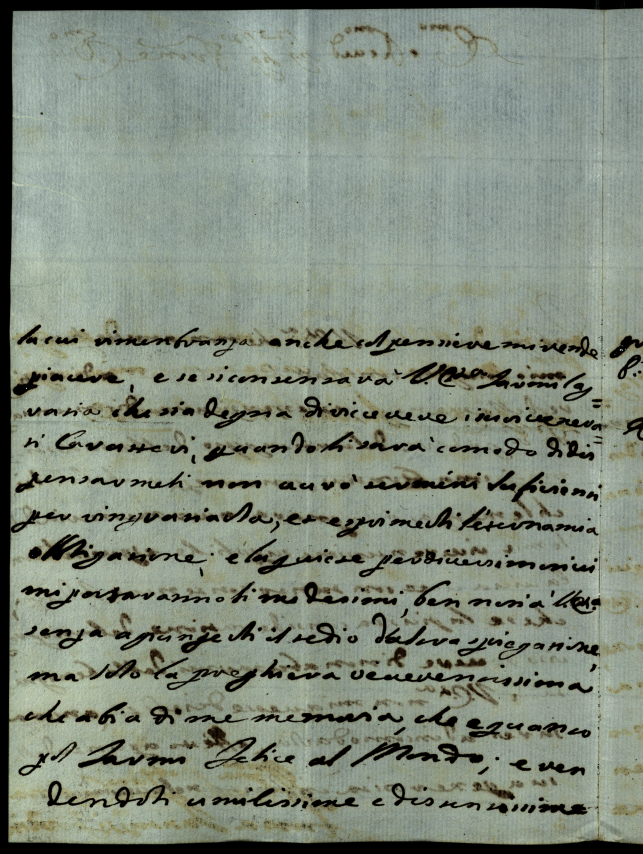 la cui rimembranza anche col pensiere mi rende
piacere, e se si consenserà V. Ecca farmi la g=
razia che sia degna di ricevere i suoi rivera=
ti Caratteri, quando li sarà comodo di dis
pensarmeli non aurò termini suficienti
per ringraziarla, et esprimerli l'eterna mia
obligazione; e la quiete per diversi motivi
mi portaranno li medesimi, ben noti à V. Ecca
senza agiungerli il tedio dalla spiegazione,
ma solo la preghiera reverentissima
che abia di me memoria, che e quanto
pol farmi Felice al Mondo; e ren
dendoli umilissime e distintissime